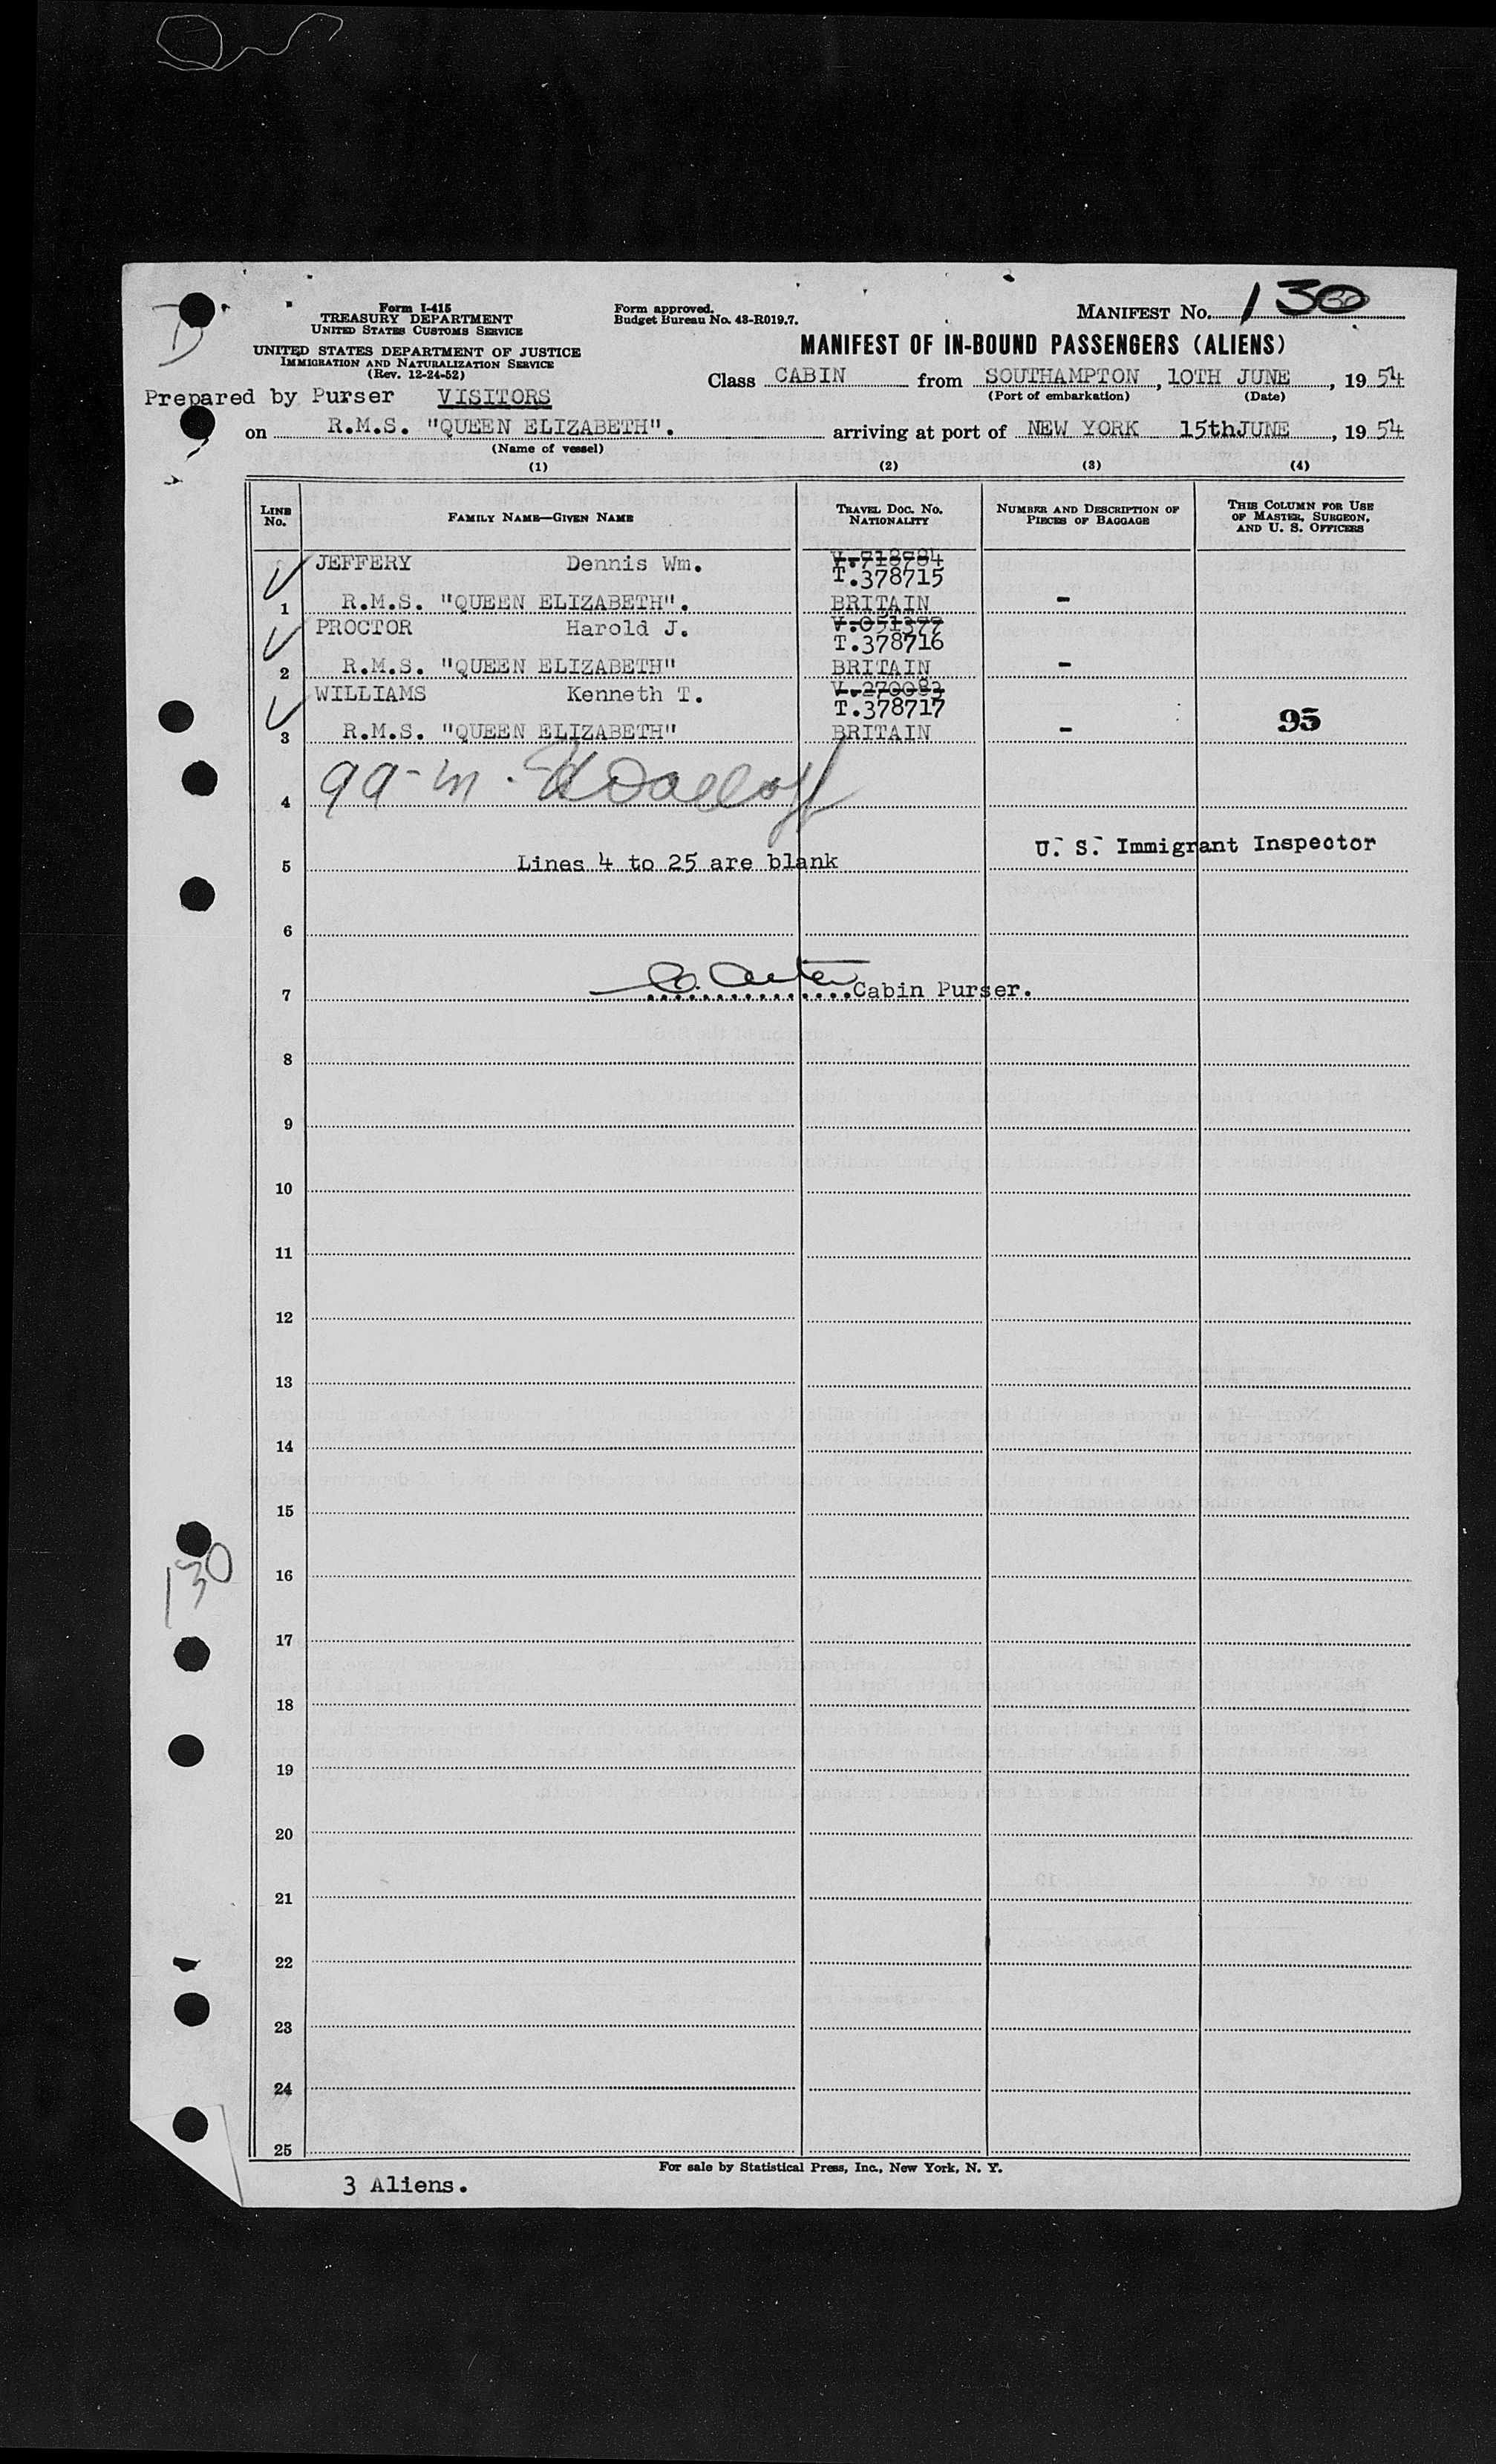 Form I-415
TREASURY DEPARTMENT
UNITED STATES CUSTOMS SERVICE
UNITED STATES DEPARTMENT OF JUSTICE
IMMIGRATION AND NATURALIZATION SERVICE
(Rev. 12-24-52)
Form approved.
Budget Bureau No. 43-R019.7.
MANIFEST No. 130
MANIFEST OF IN-BOUND PASSENGERS (ALIENS)
Class CABIN from SOUTHAMPTON, 10TH JUNE, 1954
(Port of embarkation) (Date)
Prepared by Purser VISITORS
on R.M.S. "QUEEN ELIZABETH". arriving at port of NEW YORK 15thJUNE, 1954
(Name of vessel)
(1) (2) (3) (4)
LINE No. FAMILY NAME—GIVEN NAME TRAVEL DOC. No. NATIONALITY NUMBER AND DESCRIPTION OF PIECES OF BAGGAGE THIS COLUMN FOR USE OF MASTER, SURGEON, AND U. S. OFFICERS
JEFFERY Dennis Wm. V.718784
T.378715
1 R.M.S. "QUEEN ELIZABETH". BRITAIN -
PROCTOR Harold J. V.051377
T.378716
2 R.M.S. "QUEEN ELIZABETH" BRITAIN -
WILLIAMS Kenneth T. V.270083
T.378717
3 R.M.S. "QUEEN ELIZABETH" BRITAIN - 95
4
U. S. Immigrant Inspector
5 Lines 4 to 25 are blank
6
7 Cabin Purser.
8
9
10
11
12
13
14
15
130
16
17
18
19
20
21
22
23
24
25
For sale by Statistical Press, Inc., New York, N. Y.
3 Aliens.